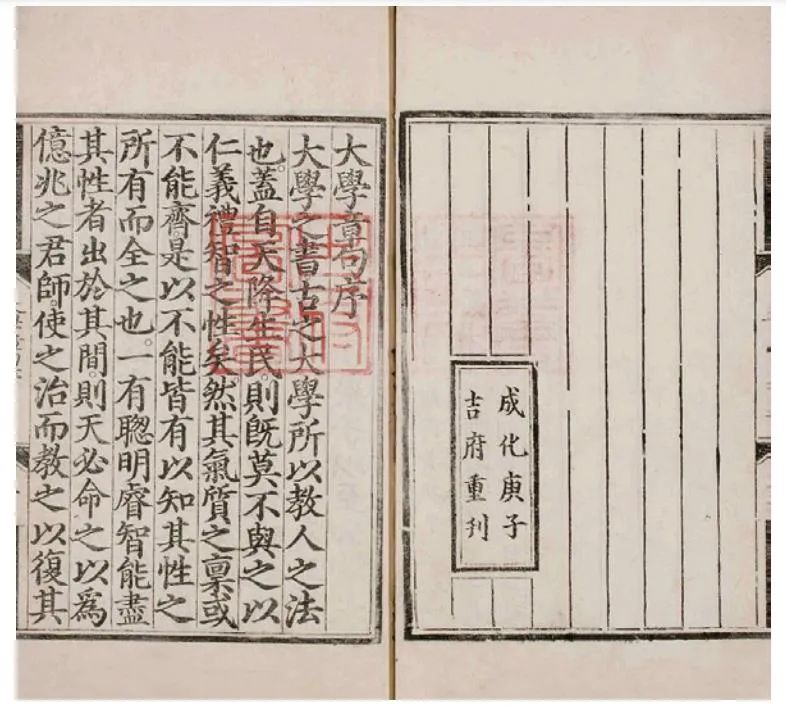 成化庚子
吉府重刊
大學章句序
大學之書古之大學所以教人之法
也。蓋自天降生民。則既莫不與之以
仁義禮智之性矣。然其氣質之稟或
不能齊。是以不能皆有以知其性之
所有而全之也。一有聰明睿智能盡
其性者出於其間。則天必命之以爲
億兆之君師。使之治而教之以復其